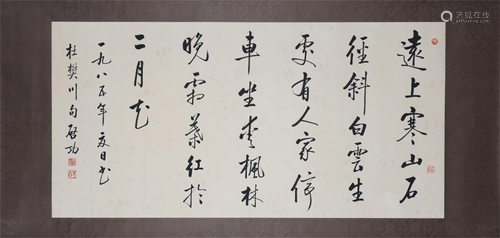 遠上寒山石
徑斜白雲生
處有人家停
車坐愛楓林
晚霜葉紅於
二月花
一九八五年夏日書
杜樊川句 啟功